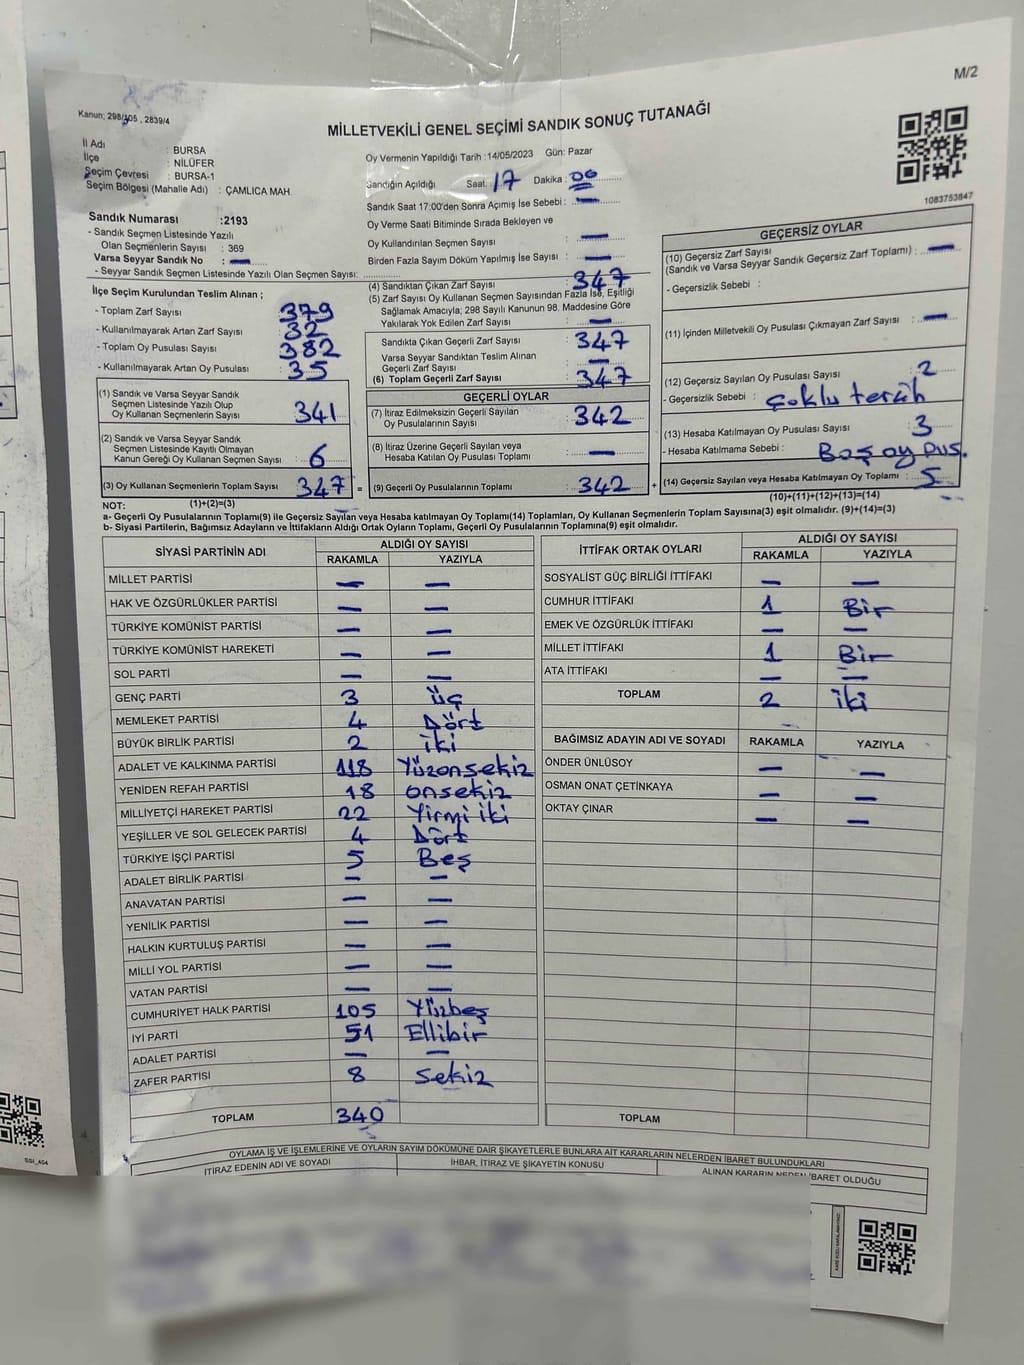 M/2
Kanun; 298/105 , 2839/4
MİLLETVEKİLİ GENEL SEÇİMİ SANDIK SONUÇ TUTANAĞI
1083753847
İl Adı : BURSA
İlçe : NİLÜFER
Seçim Çevresi : BURSA-1
Seçim Bölgesi (Mahalle Adı) : ÇAMLICA MAH.
Sandık Numarası :2193
- Sandık Seçmen Listesinde Yazılı
Olan Seçmenlerin Sayısı : 369
Varsa Seyyar Sandık No : —
- Seyyar Sandık Seçmen Listesinde Yazılı Olan Seçmen Sayısı:
İlçe Seçim Kurulundan Teslim Alınan ;
- Toplam Zarf Sayısı 379
- Kullanılmayarak Artan Zarf Sayısı 32
- Toplam Oy Pusulası Sayısı 382
- Kullanılmayarak Artan Oy Pusulası 35
(1) Sandık ve Varsa Seyyar Sandık
Seçmen Listesinde Yazılı Olup
Oy Kullanan Seçmenlerin Sayısı : 341
(2) Sandık ve Varsa Seyyar Sandık
Seçmen Listesinde Kayıtlı Olmayan
Kanun Gereği Oy Kullanan Seçmen Sayısı : 6
(3) Oy Kullanan Seçmenlerin Toplam Sayısı : 347 =
(1)+(2)=(3)
Oy Vermenin Yapıldığı Tarih :14/05/2023 Gün: Pazar
Sandığın Açıldığı Saat: 17 Dakika : 00
Sandık Saat 17:00'den Sonra Açımış İse Sebebi : —
Oy Verme Saati Bitiminde Sırada Bekleyen ve
Oy Kullandırılan Seçmen Sayısı : —
Birden Fazla Sayım Döküm Yapılmış İse Sayısı : —
(4) Sandıktan Çıkan Zarf Sayısı : 347
(5) Zarf Sayısı Oy Kullanan Seçmen Sayısından Fazla İse, Eşitliği
Sağlamak Amacıyla; 298 Sayılı Kanunun 98. Maddesine Göre
Yakılarak Yok Edilen Zarf Sayısı : —
Sandıkta Çıkan Geçerli Zarf Sayısı : 347
Varsa Seyyar Sandıktan Teslim Alınan
Geçerli Zarf Sayısı : —
(6) Toplam Geçerli Zarf Sayısı : 347
GEÇERLİ OYLAR
(7) İtiraz Edilmeksizin Geçerli Sayılan
Oy Pusulalarının Sayısı : 342
(8) İtiraz Üzerine Geçerli Sayılan veya
Hesaba Katılan Oy Pusulası Toplamı : —
(9) Geçerli Oy Pusulalarının Toplamı : 342 +
GEÇERSİZ OYLAR
(10) Geçersiz Zarf Sayısı
(Sandık ve Varsa Seyyar Sandık Geçersiz Zarf Toplamı) : —
- Geçersizlik Sebebi :
(11) İçinden Milletvekili Oy Pusulası Çıkmayan Zarf Sayısı : —
(12) Geçersiz Sayılan Oy Pusulası Sayısı : 2
- Geçersizlik Sebebi : Çoklu tercih
(13) Hesaba Katılmayan Oy Pusulası Sayısı : 3
- Hesaba Katılmama Sebebi : Boş oy pus.
(14) Geçersiz Sayılan veya Hesaba Katılmayan Oy Toplamı : 5
(10)+(11)+(12)+(13)=(14)
NOT:
a- Geçerli Oy Pusulalarının Toplamı(9) ile Geçersiz Sayılan veya Hesaba katılmayan Oy Toplamı(14) Toplamları, Oy Kullanan Seçmenlerin Toplam Sayısına(3) eşit olmalıdır. (9)+(14)=(3)
b- Siyasi Partilerin, Bağımsız Adayların ve İttifakların Aldığı Ortak Oyların Toplamı, Geçerli Oy Pusulalarının Toplamına(9) eşit olmalıdır.
SİYASİ PARTİNİN ADI ALDIĞI OY SAYISI
RAKAMLA YAZIYLA
MİLLET PARTİSİ — —
HAK VE ÖZGÜRLÜKLER PARTİSİ — —
TÜRKİYE KOMÜNİST PARTİSİ — —
TÜRKİYE KOMÜNİST HAREKETİ — —
SOL PARTİ — —
GENÇ PARTİ 3 Üç
MEMLEKET PARTİSİ 4 Dört
BÜYÜK BİRLİK PARTİSİ 2 iki
ADALET VE KALKINMA PARTİSİ 118 Yüzonsekiz
YENİDEN REFAH PARTİSİ 18 onsekiz
MİLLİYETÇİ HAREKET PARTİSİ 22 Yirmi iki
YEŞİLLER VE SOL GELECEK PARTİSİ 4 Dört
TÜRKİYE İŞÇİ PARTİSİ 5 Beş
ADALET BİRLİK PARTİSİ — —
ANAVATAN PARTİSİ — —
YENİLİK PARTİSİ — —
HALKIN KURTULUŞ PARTİSİ — —
MİLLİ YOL PARTİSİ — —
VATAN PARTİSİ — —
CUMHURİYET HALK PARTİSİ 105 Yüzbeş
İYİ PARTİ 51 Ellibir
ADALET PARTİSİ — —
ZAFER PARTİSİ 8 Sekiz
TOPLAM 340
İTTİFAK ORTAK OYLARI ALDIĞI OY SAYISI
RAKAMLA YAZIYLA
SOSYALİST GÜÇ BİRLİĞİ İTTİFAKI — —
CUMHUR İTTİFAKI 1 Bir
EMEK VE ÖZGÜRLÜK İTTİFAKI — —
MİLLET İTTİFAKI 1 Bir
ATA İTTİFAKI — —
TOPLAM 2 iki
BAĞIMSIZ ADAYIN ADI VE SOYADI RAKAMLA YAZIYLA
ÖNDER ÜNLÜSOY — —
OSMAN ONAT ÇETİNKAYA — —
OKTAY ÇINAR — —
TOPLAM
OYLAMA İŞ VE İŞLEMLERİNE VE OYLARIN SAYIM DÖKÜMÜNE DAİR ŞİKAYETLERLE BUNLARA AİT KARARLARIN NELERDEN İBARET BULUNDUKLARI
İTİRAZ EDENİN ADI VE SOYADI İHBAR, İTİRAZ VE ŞİKAYETİN KONUSU ALINAN KARARIN NEDEN İBARET OLDUĞU